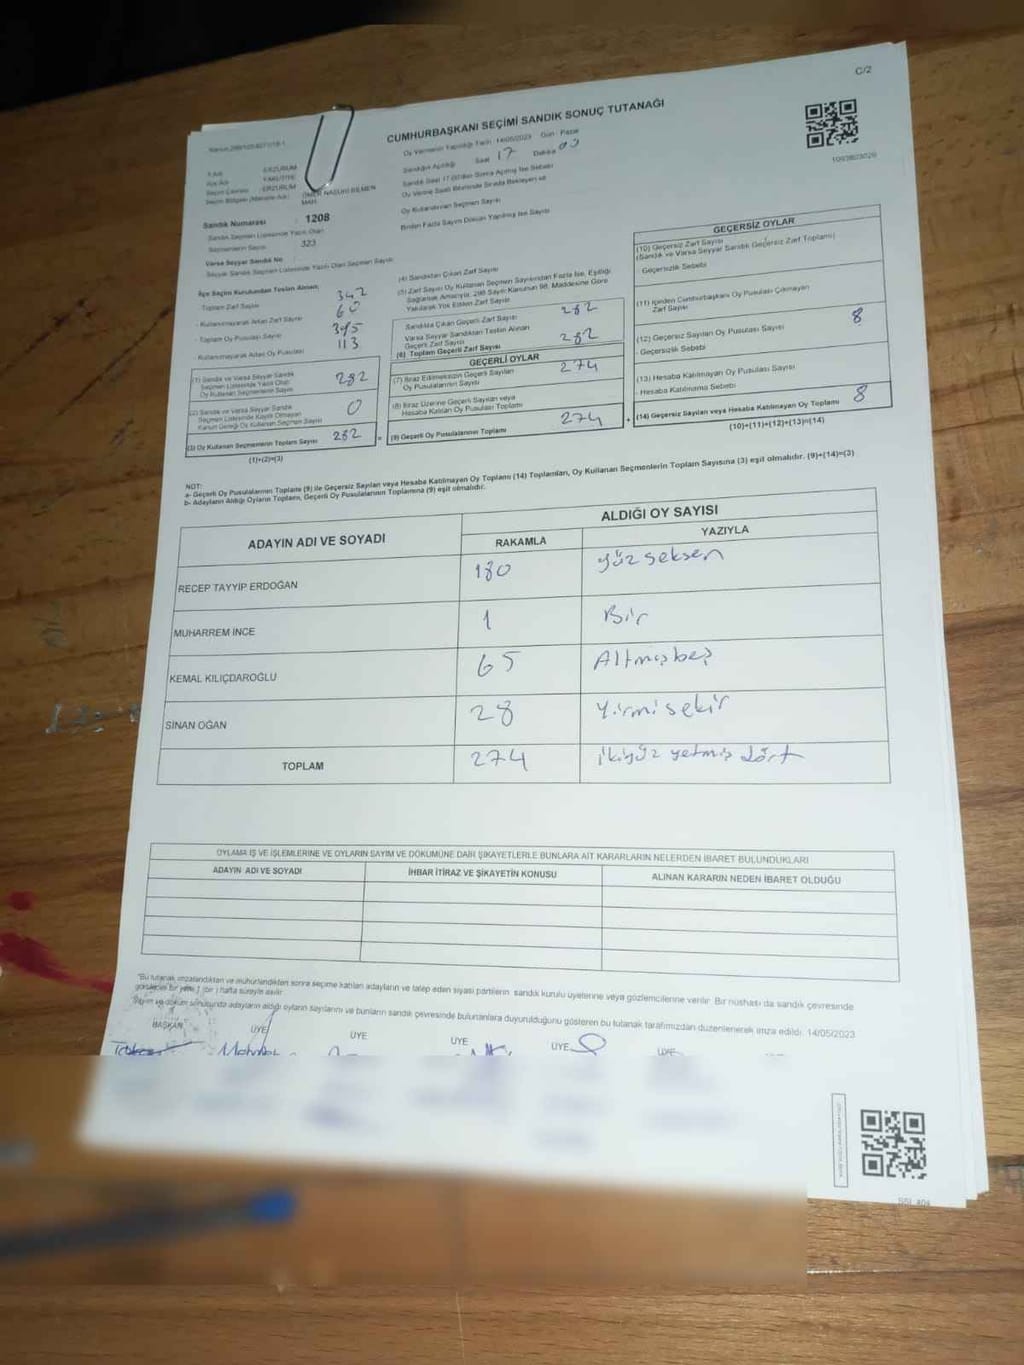 C/2
CUMHURBAŞKANI SEÇİMİ SANDIK SONUÇ TUTANAĞI
Oy Vermenin Yapıldığı Tarih : 14/05/2023 Gün : Pazar
Sandığın Açıldığı Saat 17 Dakika 00
Oy Kullandırılan Seçmen Sayısı
Birden Fazla Sayım Döküm Yapılmış İse Sayısı
İl Adı : ERZURUM
İlçe Adı : YAKUTİYE
Seçim Çevresi : ERZURUM
ÖMER NASUHİ BİLMEN
MAH.
Sandık Numarası : 1208
Sandık Seçmen Listesinde Yazılı Olan
Seçmenlerin Sayısı : 323
Varsa Seyyar Sandık No
Seyyar Sandık Seçmen Listesinde Yazılı Olan Seçmen Sayısı
İlçe Seçim Kurulundan Teslim Alınan;
Toplam Zarf Sayısı 342
Kullanılmayarak Artan Zarf Sayısı 60
Toplam Oy Pusulası Sayısı 395
Kullanılmayarak Artan Oy Pusulası 113
(1) Sandık ve Varsa Seyyar Sandık
Seçmen Listesinde Yazılı Olup
Oy Kullanan Seçmenlerin Sayısı 282
(2) Sandık ve Varsa Seyyar Sandık
Seçmen Listesinde Kayıtlı Olmayan
Kanun Gereği Oy Kullanan Seçmen Sayısı 0
(3) Oy Kullanan Seçmenlerin Toplam Sayısı 282
(1)+(2)=(3)
(4) Sandıktan Çıkan Zarf Sayısı
(5) Zarf Sayısı Oy Kullanan Seçmen Sayısından Fazla İse, Eşitliği
Sağlamak Amacıyla, 298 Sayılı Kanunun 98. Maddesine Göre
Yakılarak Yok Edilen Zarf Sayısı
Sandıkta Çıkan Geçerli Zarf Sayısı 282
Varsa Seyyar Sandıktan Teslim Alınan
Geçerli Zarf Sayısı
(6) Toplam Geçerli Zarf Sayısı 282
GEÇERLİ OYLAR
(7) İtiraz Edilmeksizin Geçerli Sayılan
Oy Pusulalarının Sayısı 274
(8) İtiraz Üzerine Geçerli Sayılan veya
Hesaba Katılan Oy Pusulası Toplamı
(9) Geçerli Oy Pusulalarının Toplamı 274
GEÇERSİZ OYLAR
(10) Geçersiz Zarf Sayısı
(Sandık ve Varsa Seyyar Sandık Geçersiz Zarf Toplamı)
Geçersizlik Sebebi
(11) İçinden Cumhurbaşkanı Oy Pusulası Çıkmayan
Zarf Sayısı
(12) Geçersiz Sayılan Oy Pusulası Sayısı 8
Geçersizlik Sebebi
(13) Hesaba Katılmayan Oy Pusulası Sayısı
Hesaba Katılmama Sebebi
(14) Geçersiz Sayılan veya Hesaba Katılmayan Oy Toplamı 8
(10)+(11)+(12)+(13)=(14)
NOT:
a- Geçerli Oy Pusulalarının Toplamı (9) ile Geçersiz Sayılan veya Hesaba Katılmayan Oy Toplamı (14) Toplamları, Oy Kullanan Seçmenlerin Toplam Sayısına (3) eşit olmalıdır. (9)+(14)=(3)
b- Adayların Aldığı Oyların Toplamı, Geçerli Oy Pusulalarının Toplamına (9) eşit olmalıdır.
ADAYIN ADI VE SOYADI
ALDIĞI OY SAYISI
RAKAMLA YAZIYLA
RECEP TAYYİP ERDOĞAN 180 yüz seksen
MUHARREM İNCE 1 Bir
KEMAL KILIÇDAROĞLU 65 Altmışbeş
SİNAN OĞAN 28 Yirmi sekiz
TOPLAM 274 ikiyüz yetmiş dört
OYLAMA İŞ VE İŞLEMLERİNE VE OYLARIN SAYIM VE DÖKÜMÜNE DAİR ŞİKAYETLERLE BUNLARA AİT KARARLARIN NELERDEN İBARET BULUNDUKLARI
ADAYIN ADI VE SOYADI İHBAR İTİRAZ VE ŞİKAYETİN KONUSU ALINAN KARARIN NEDEN İBARET OLDUĞU
"Bu tutanak imzalandıktan ve mühürlendikten sonra seçime katılan adayların ve talep eden siyasi partilerin sandık kurulu üyelerine veya gözlemcilerine verilir. Bir nüshası da sandık çevresinde
görülecek bir yere 1 (bir) hafta süreyle asılır.
Sayım ve döküm sonucunda adayların aldığı oyların sayılarını ve bunların sandık çevresinde bulunanlara duyurulduğunu gösteren bu tutanak tarafımızdan düzenlenerek imza edildi. 14/05/2023
BAŞKAN ÜYE ÜYE ÜYE ÜYE ÜYE